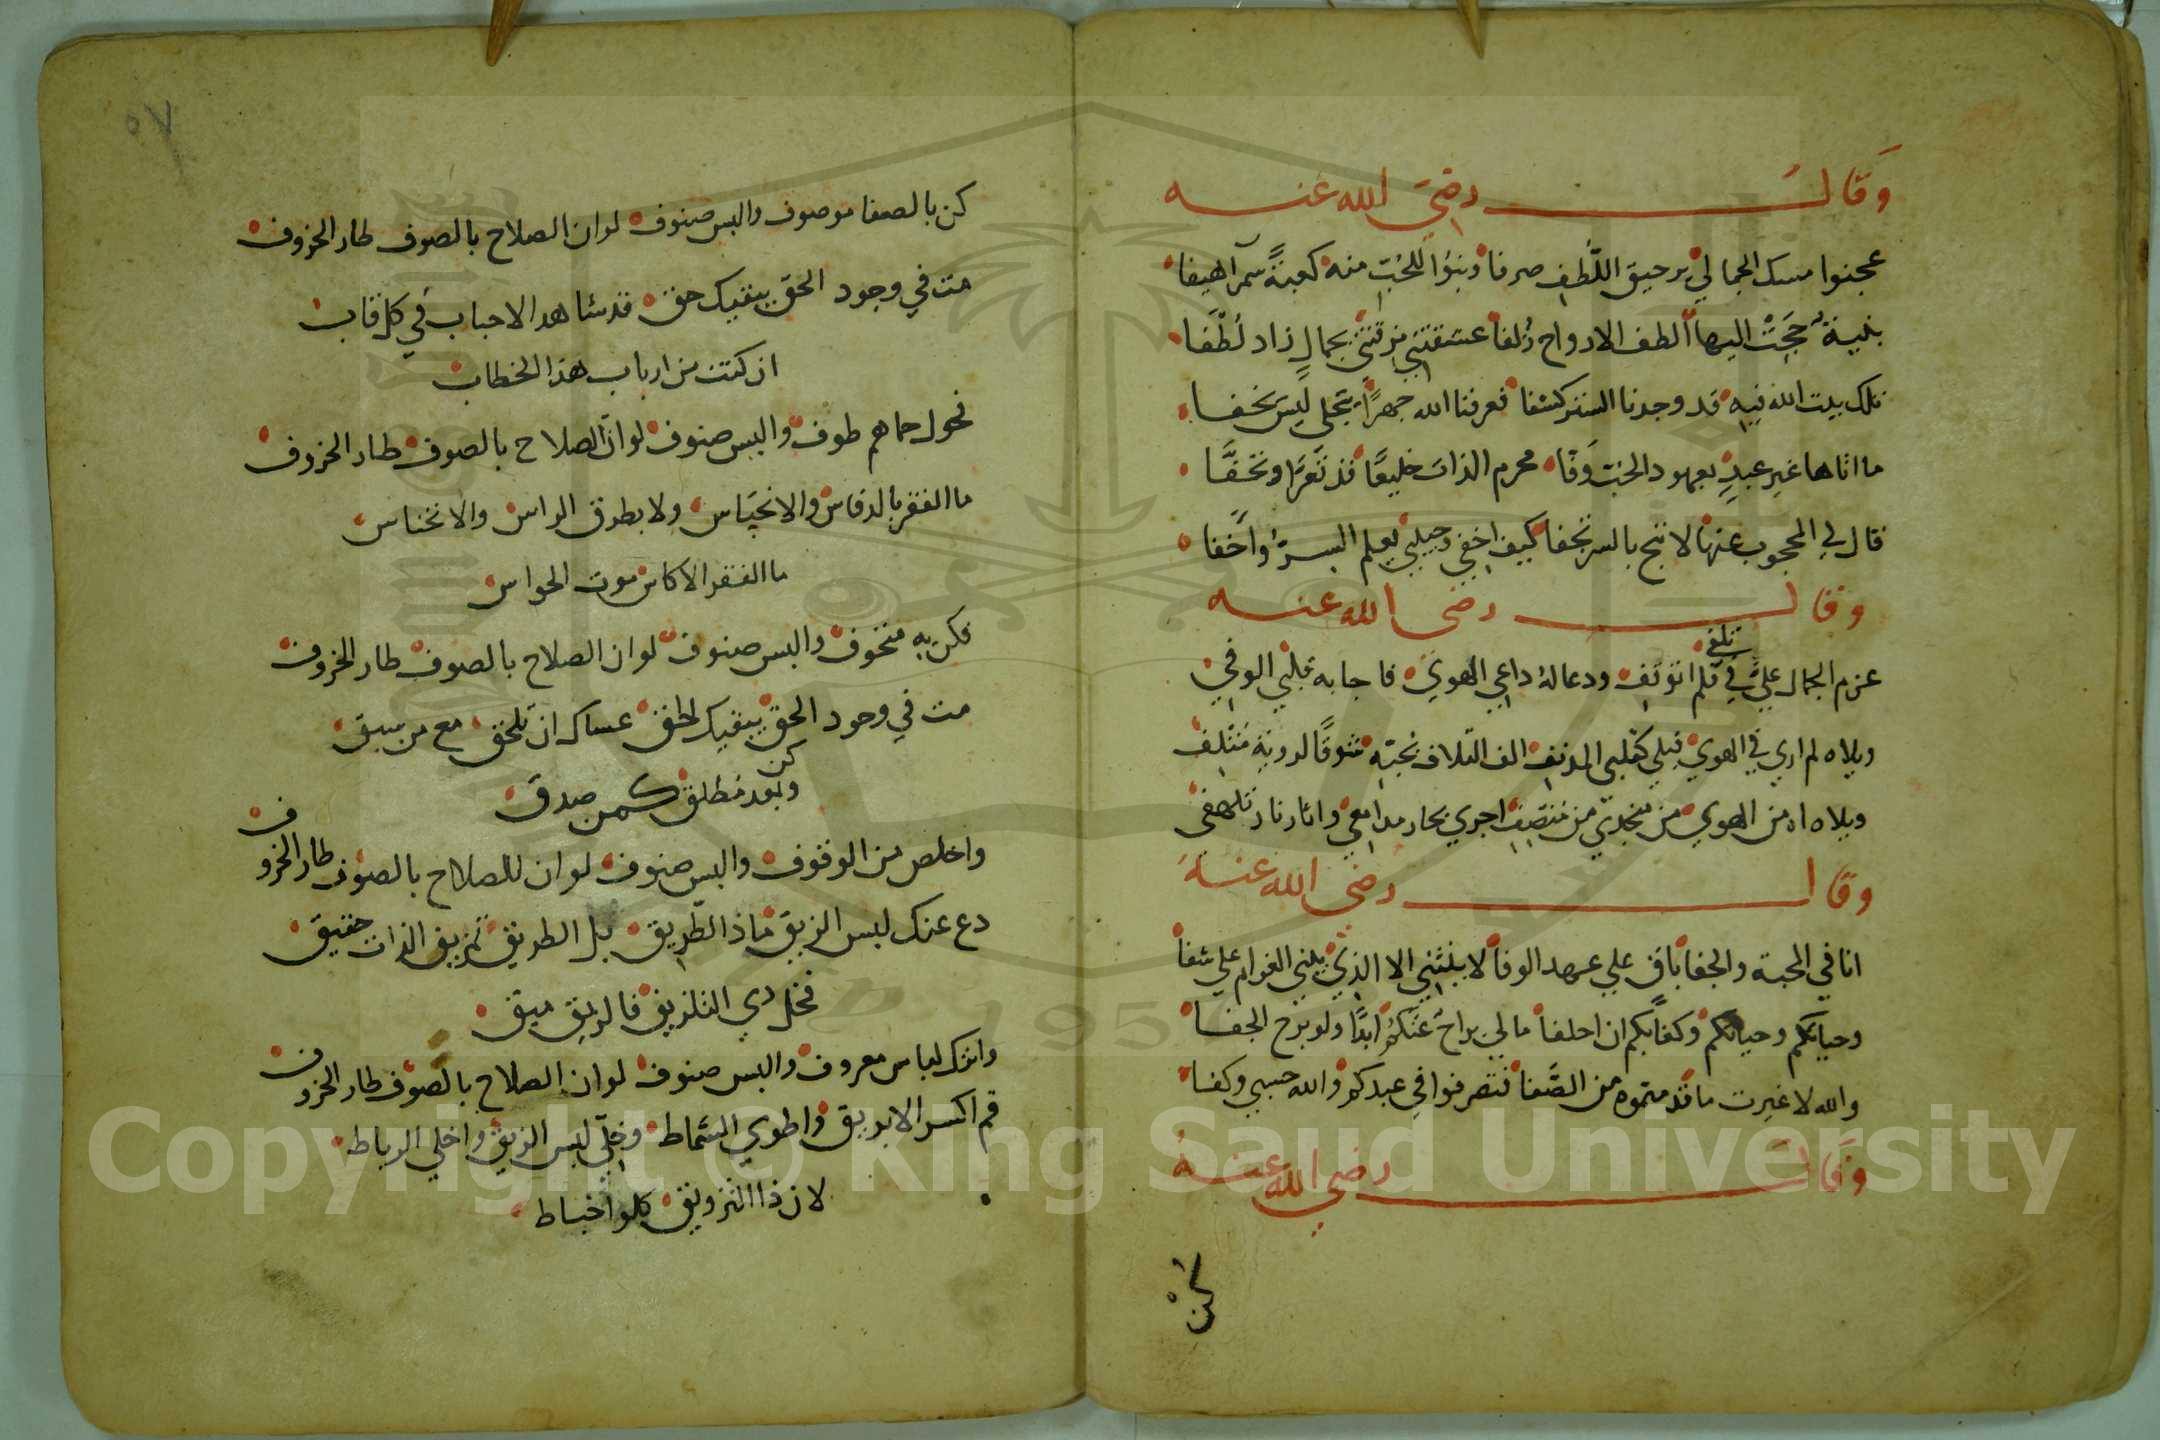 وقال رضي الله عنه
عجنوا مسك الجمالي برحيق اللطف صرفا وبنوا للحب منه كعبة سمرا هيفا
بنية حجت اليها الطف الارواح زلفا عشقتني مزقتني بجمال زاد لطفا
تلك بيت الله فيه قد وجدنا الستر كشفا فعرفنا الله جهرا يتجلى ليس يخفا
ما اتاها غير عبد بعهود الحب وفا محرم الذات خليعا قد تعرا وتخفا
قال لي المحجوب عنها لا تبح بالسر تجفا كيف اخفي وحبيبي يعلم السر واخفا
وقال رضي الله عنه
عزم الجمال علي في تلفي فلم اتوقف ودعا له داعي الهوي فاجابه قلبي الوفي
ويلاه لم اري في الهوي قبلي كقلبي المدنف الف التلاف محبة شوقا لرويه متلف
ويلاه اه من الهوي من منجدي من منصف اجري بحار مدامعي واثار نار تلهفي
وقال رضي الله عنه
انا في المحبة والجفا باق علي عهد الوفا لا يثنني الا الذي يثني الغرام علي شفا
وحياتكم وحياتكم وكفا بكم ان احلفا ما لي براح عنكم ابدا ولو برح الجفا
والله لا غيرت ما قدمتموه من الصفا فتصرفوا في عبدكم والله حسبي وكفا
وقال رضي الله عنه
كن
٥٧
كن بالصفا موصوف والبس صنوف لو ان الصلاح بالصوف طار الخروف
مت في وجود الحق يبقيك حق قد شاهد الاحباب في كل قاب
ان كنت من ارباب هذا الخطاب
نحول حماهم طوف والبس صنوف لو ان الصلاح بالصوف طار الخروف
ما الفقر بالدفاس والانحباس ولا بطرق الراس والانخناس
ما الفقر الا كاس موت الحواس
فكن به متحوف والبس صنوف لو ان الصلاح بالصوف طار الخروف
مت في وجود الحق يبقيك لحق عساك ان تلحق مع من سبق
وبعد مطلق كن كمن صدق
واخلص من الوقوف والبس صنوف لو ان للصلاح بالصوف طار الخروف
دع عنك لبس الزيق ما ذا الطريق بل الطريق تمزيق الذات حقيق
فخل دي التلزيق فالريق ميق
واترك لباس معروف والبس صنوف لو ان الصلاح بالصوف طار الخروف
قم اكسر الابريق واطوي الشماط وخلي لبس الزيق واخلي الرباط
لان ذا التزويق كلو اخباط
Copyright © King Saud University
1957